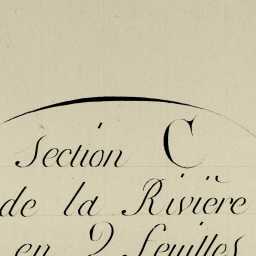 Section C
de la Rivière
en 2 feuilles